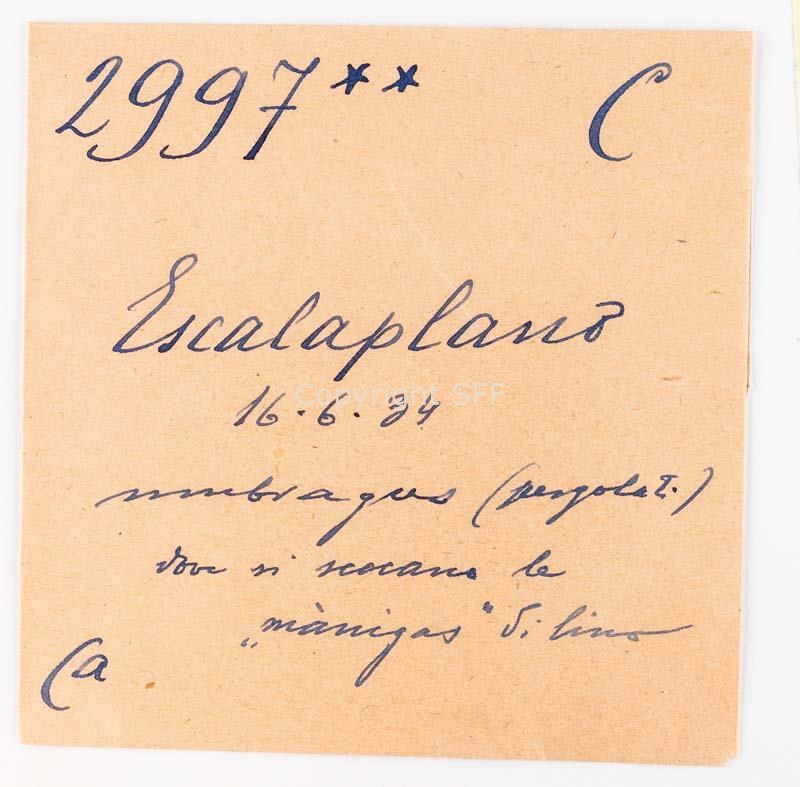 2997** C
Escalaplano
16.6.34
Copyright SFF
umbragus (pergolat.)
dove si seccano le
„mànigas" di lino
Ca